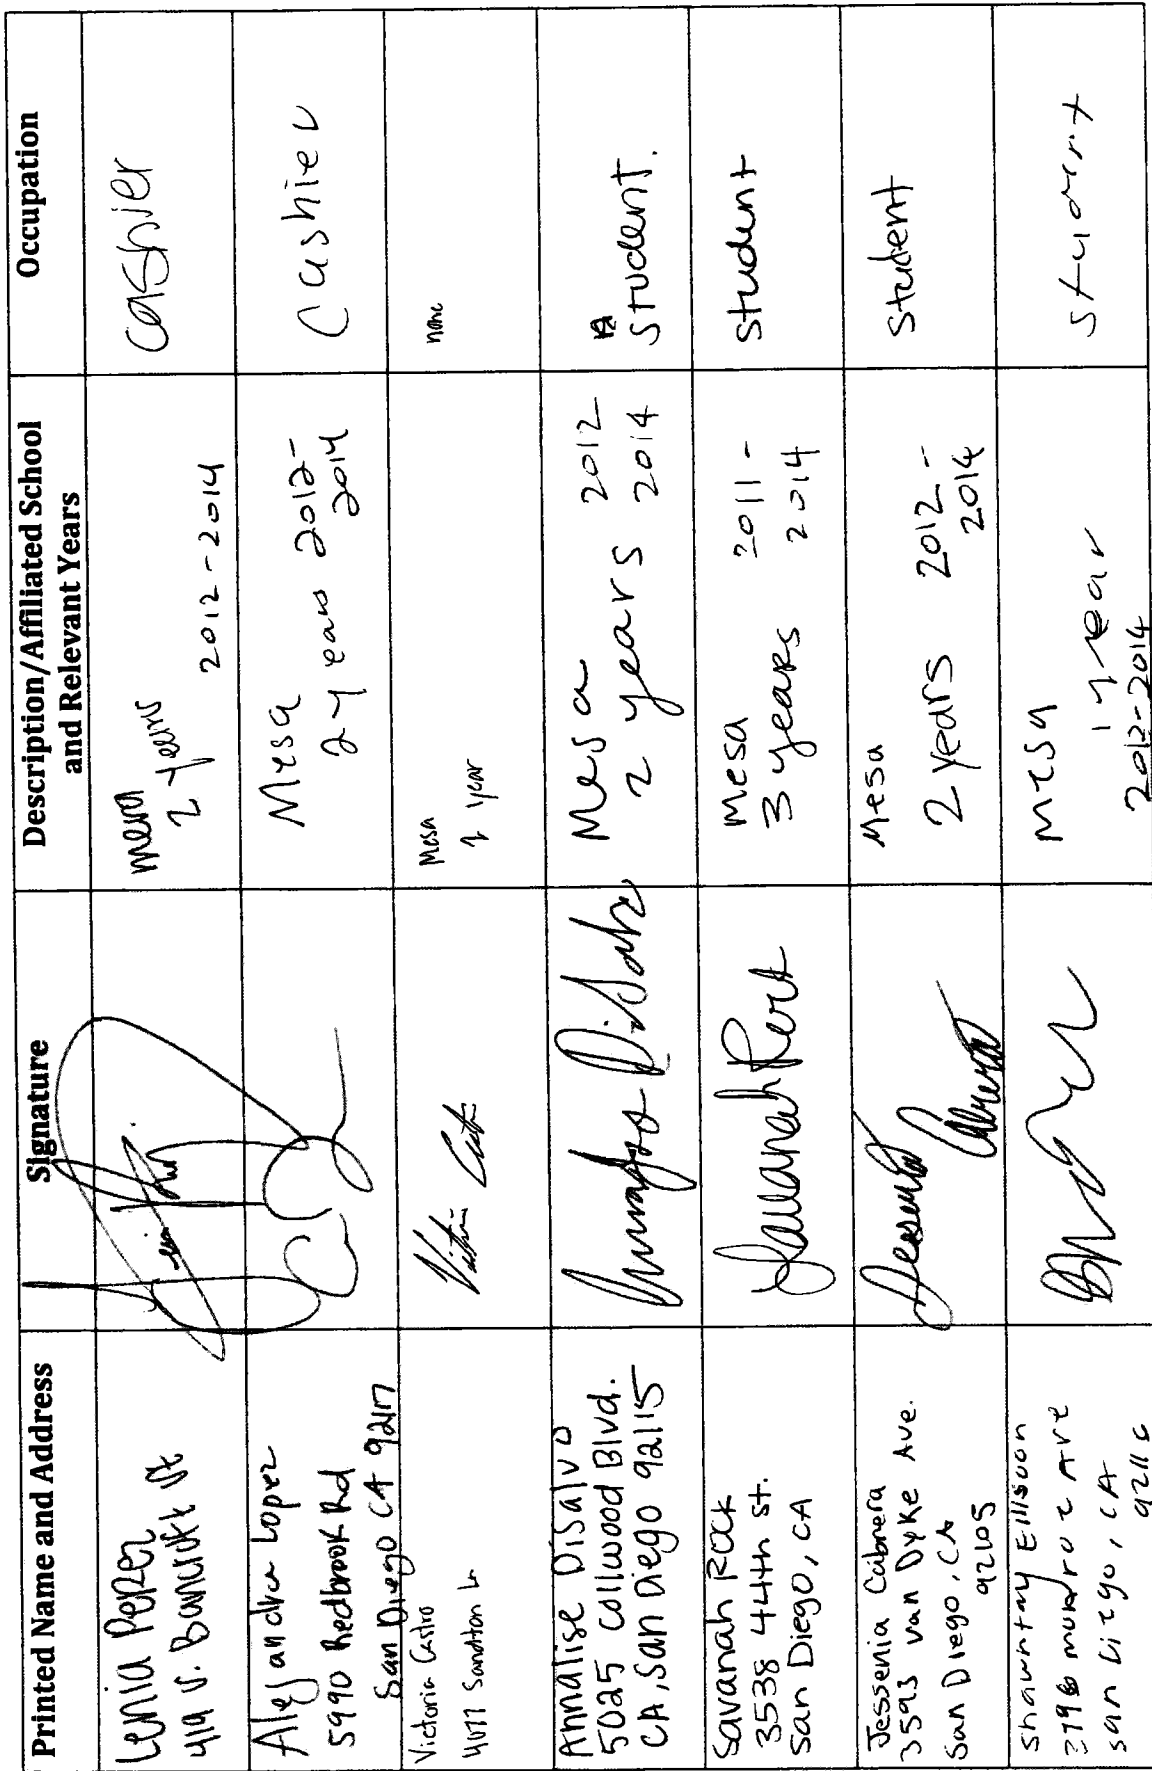 Printed Name and Address
Signature
Description/Affiliated School
and Relevant Years
Occupation
Lenia Perez
419 N. Bancroft St
Mesa
2 years
2012-2014
Cashier
Alejandra Lopez
5990 Redbrook Rd
San Diego CA 92117
Mesa
2 years 2012-
2014
Cashier
Victoria Castro
4077 Sandton Ln
Mesa
1 year
none
Annalise DiSalvo
5025 Collwood Blvd.
CA, San Diego 92115
Mesa 2012
2 years 2014
Student.
Savanah Rock
3538 44th st.
San Diego, CA
Savanah
Mesa 2011-
3 years 2014
student
Jessenia Cabrera
3593 Van Dyke Ave.
San Diego, CA
92105
Jessenia Cabrera
Mesa
2 years 2012-
2014
Student
Shauntay Ellisoon
Ave
San Diego, CA
Mesa
1 year
2012-2014
student